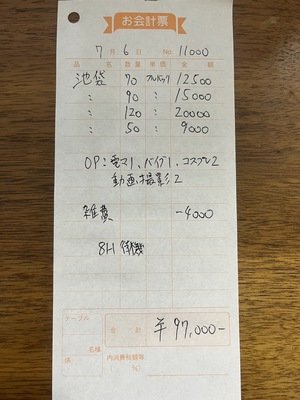 お会計票
7月 6日 No. 11000
品名 数量 単価 金額
池袋 70 フルバック 12500
: 90 : 15000
: 120 : 20000
: 50 : 9000
OP:電マ1、バイブ1、コスプレ2
動画撮影2
雑費 -4000
8H 待機
テーブル
合計 ¥97,000-
名様
内消費税額等
係 %)